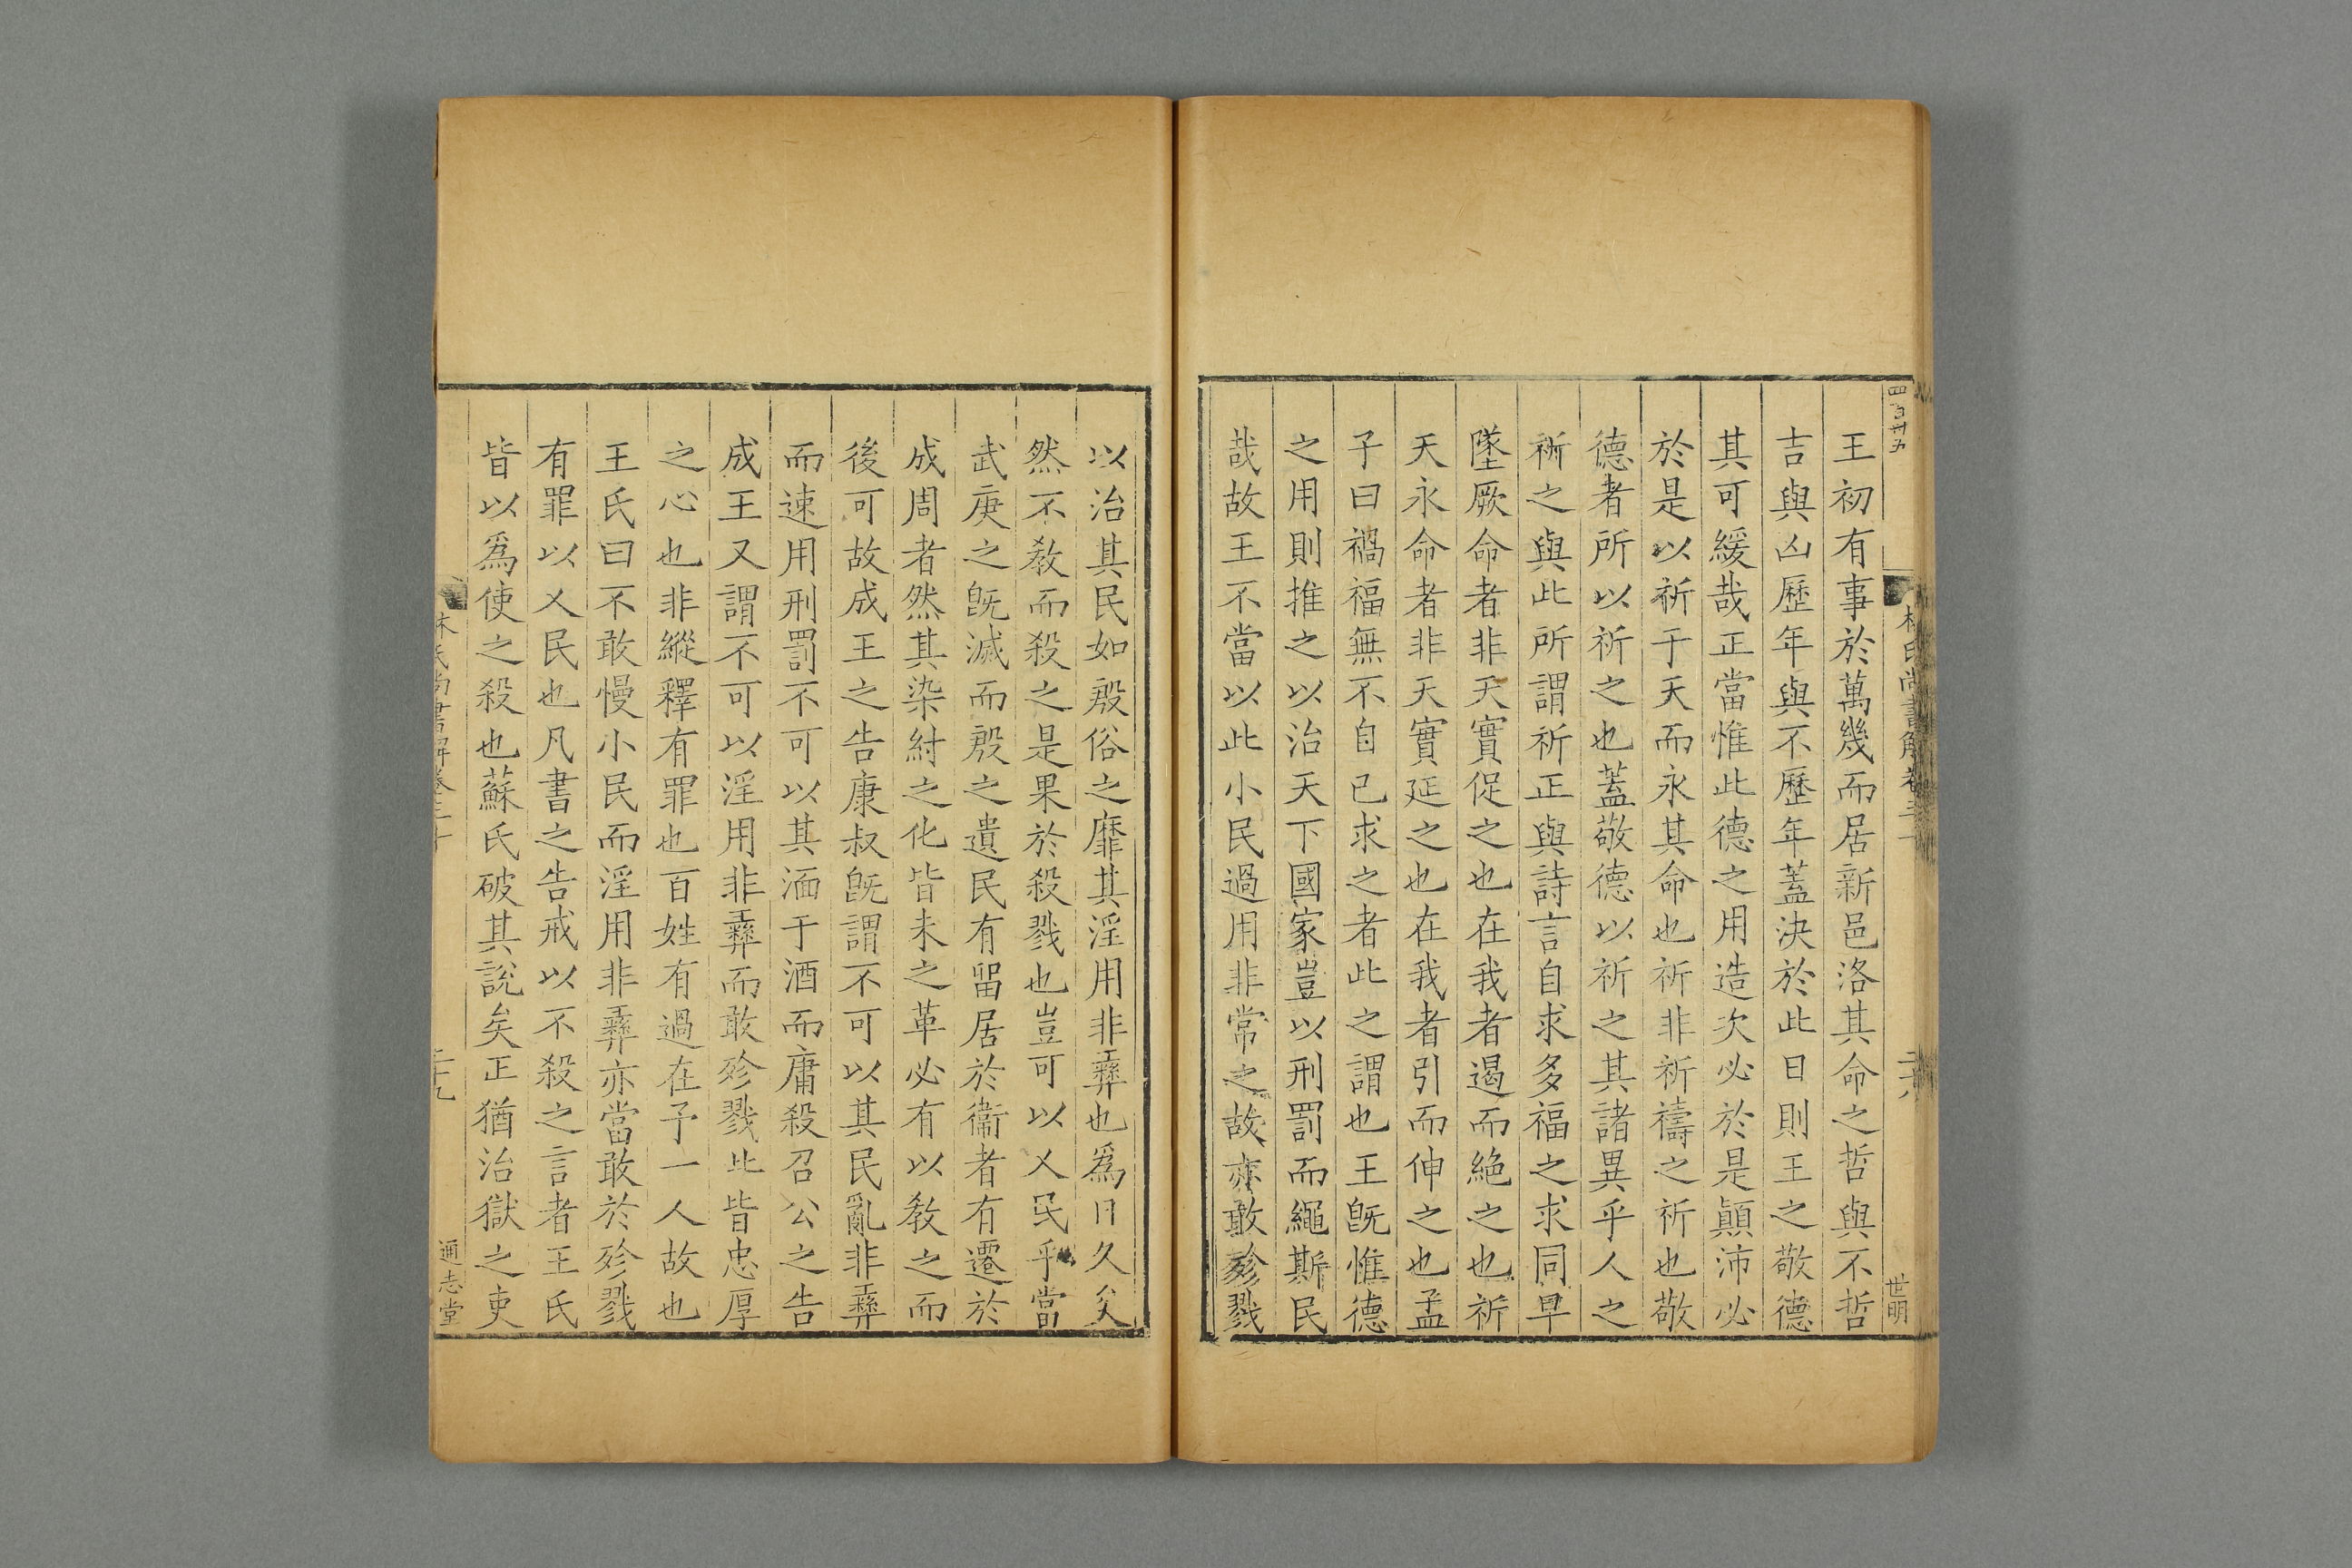 王初有事於萬幾而居新邑洛其命之哲與不哲
吉與凶歷年與不歷年蓋決於此日則王之敬德
其可緩哉正當惟此德之用造次必於是顛沛必
於是以祈于天而永其命也祈非祈禱之祈也敬
德者所以祈之也蓋敬德以祈之其諸異乎人之
祈之與此所謂祈正與詩言自求多福之求同早
墜厥命者非天實促之也在我者遏而絶之也祈
天永命者非天實延之也在我者引而伸之也孟
子曰禍福無不自已求之者此之謂也王旣惟德
之用則推之以治天下國家豈以刑罰而繩斯民
哉故王不當以此小民過用非常之故亦敢殄戮
以治其民如殷俗之靡其淫用非彝也爲日久矣
然不敎而殺之是果於殺戮也豈可以乂民乎當
武庚之旣滅而殷之遺民有留居於衞者有遷於
成周者然其染紂之化皆未之革必有以敎之而
後可故成王之告康叔旣謂不可以其民亂非彝
而速用刑罰不可以其湎于酒而庸殺召公之告
成王又謂不可以淫用非彝而敢殄戮此皆忠厚
之心也非縱釋有罪也百姓有過在予一人故也
王氏曰不敢慢小民而淫用非彝亦當敢於殄戮
有罪以乂民也凡書之告戒以不殺之言者王氏
皆以爲使之殺也蘇氏破其說矣正猶治獄之吏
林氏尚書解卷三十
二十九
通志堂
世明